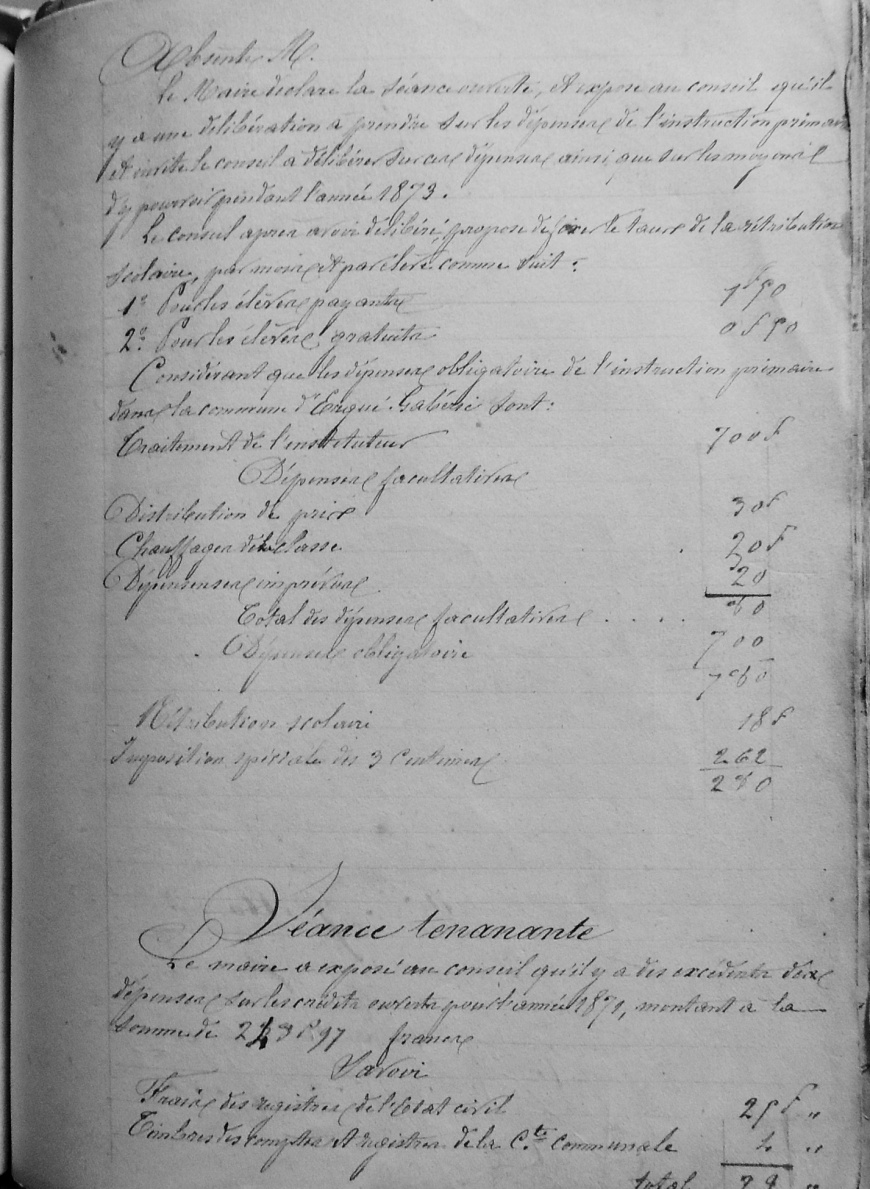 Absents M.
Le Maire déclare la séance ouverte, et expose au conseil qu'il
y a une délibération à prendre sur les dépenses de l'instruction primaire
et invite le conseil a délibérer sur ces dépenses ainsi que sur les moyens
d'y pourvoir pendant l'année 1873.
Le conseil après avoir délibéré, propose de fixer le taux de la rétribution
scolaire, par mois et par élève comme suit :
1º Pour les élèves payants 1f50
2º Pour les élèves gratuits 0f50
Considérant que les dépenses obligatoire de l'instruction primaire
dans la commune d'Ergué-Gabéric sont :
Traitement de l'instituteur 700f
Dépenses facultatives
Distribution de prix 30f
Chauffages de la classe . 20f
Dépensenses imprévus 20
Total des dépenses facultatives . . . . 60
Dépenses obligatoire 700
760
Rétribution scolaire 18f
Imposition spéciale des 3 Centimes 262
280
Séance tenanante
Le maire a exposé au conseil qu'il y a des excédents des
dépenses sur les crédits ouverts pour l'année 1871, montant à la
somme de 243f97 francs
Savoir
Frais des registres de l'état civil 25f "
Timbres des comptes et registres de la Cte communale 4 "
total 29 "